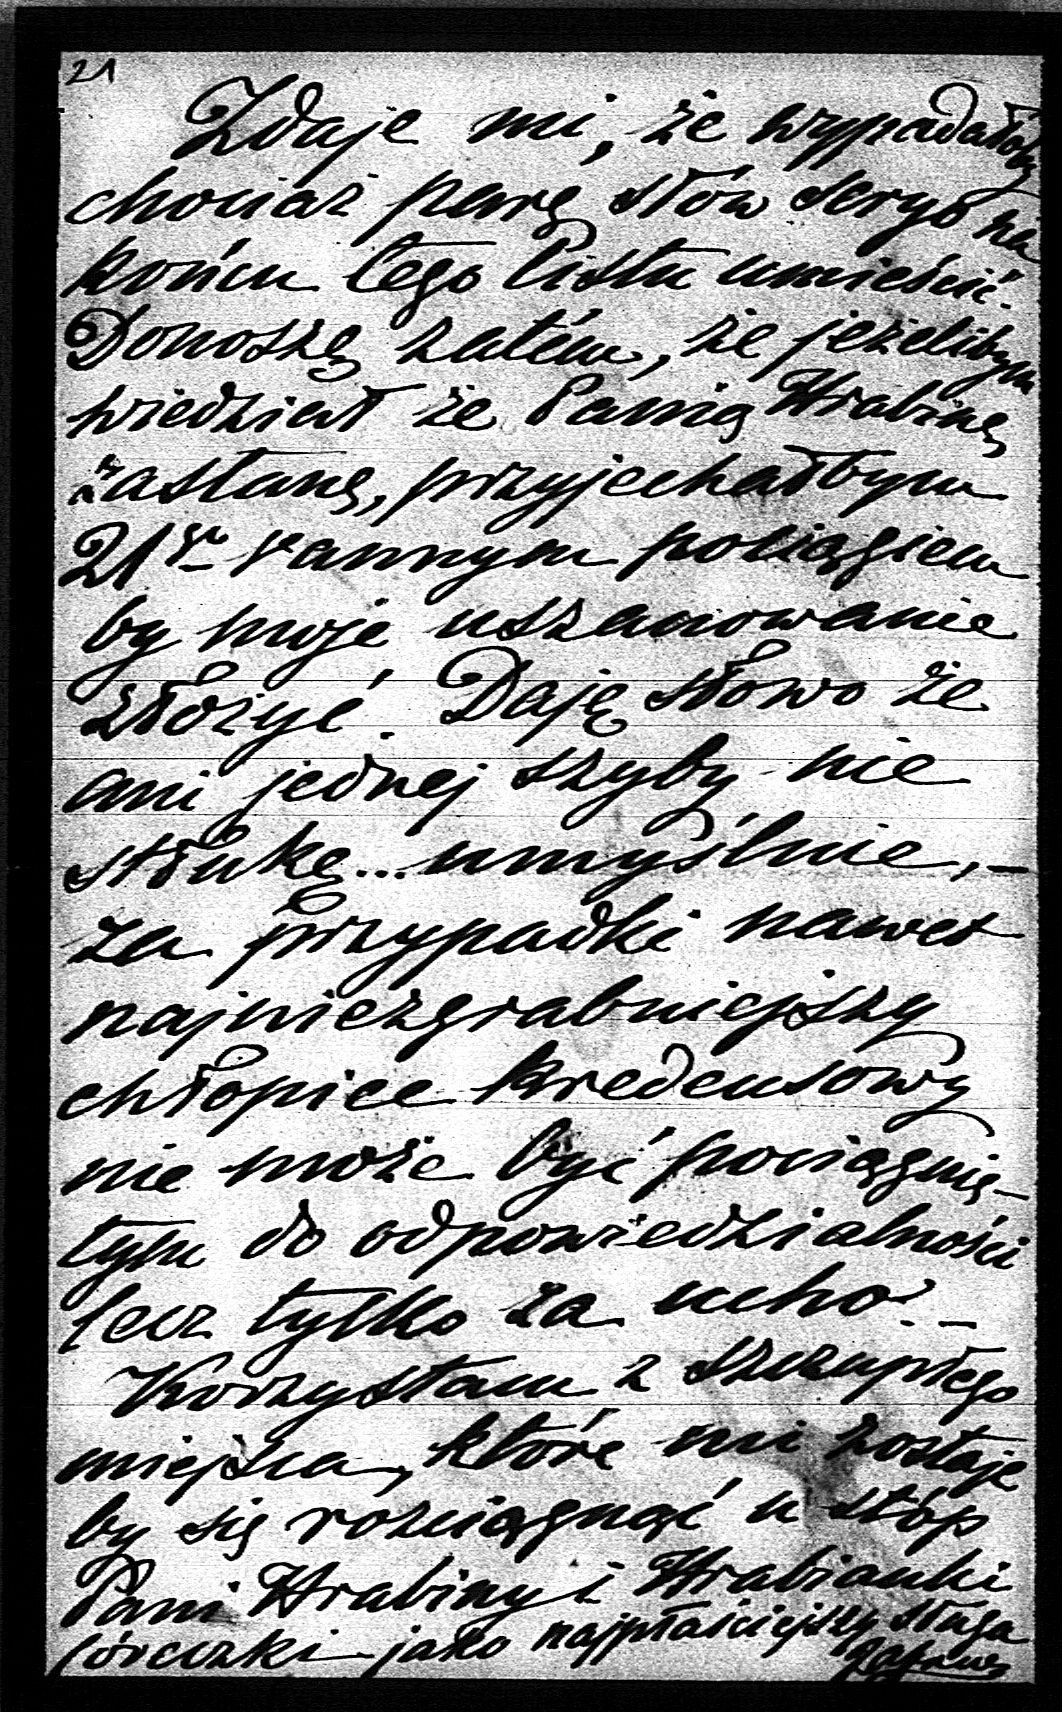 21
Zdaje mi, że wypadałoby
chociaż parę słów seryo na
końcu tego listu umieścić.
Donoszę zatém, że jeżelibym
wiedział że Panią Hrabinę
zastanę, przyjechałbym
21go rannym pociągiem
by moje uszanowanie
złożyć. Daję słowo że
ani jednej szyby nie
stłukę... umyślnie, –
za przypadki nawet
najniezgrabniejszy
chłopiec kredensowy
nie może być pociągnię–
tym do odpowiedzialności
lecz tylko za ucho. –
Korzystam z szczupłego
miejsca, które mi zostaje
by się rozciągnąć u stóp
Pani Hrabiny i Hrabianki
córeczki jako najpłaściejszy sługa